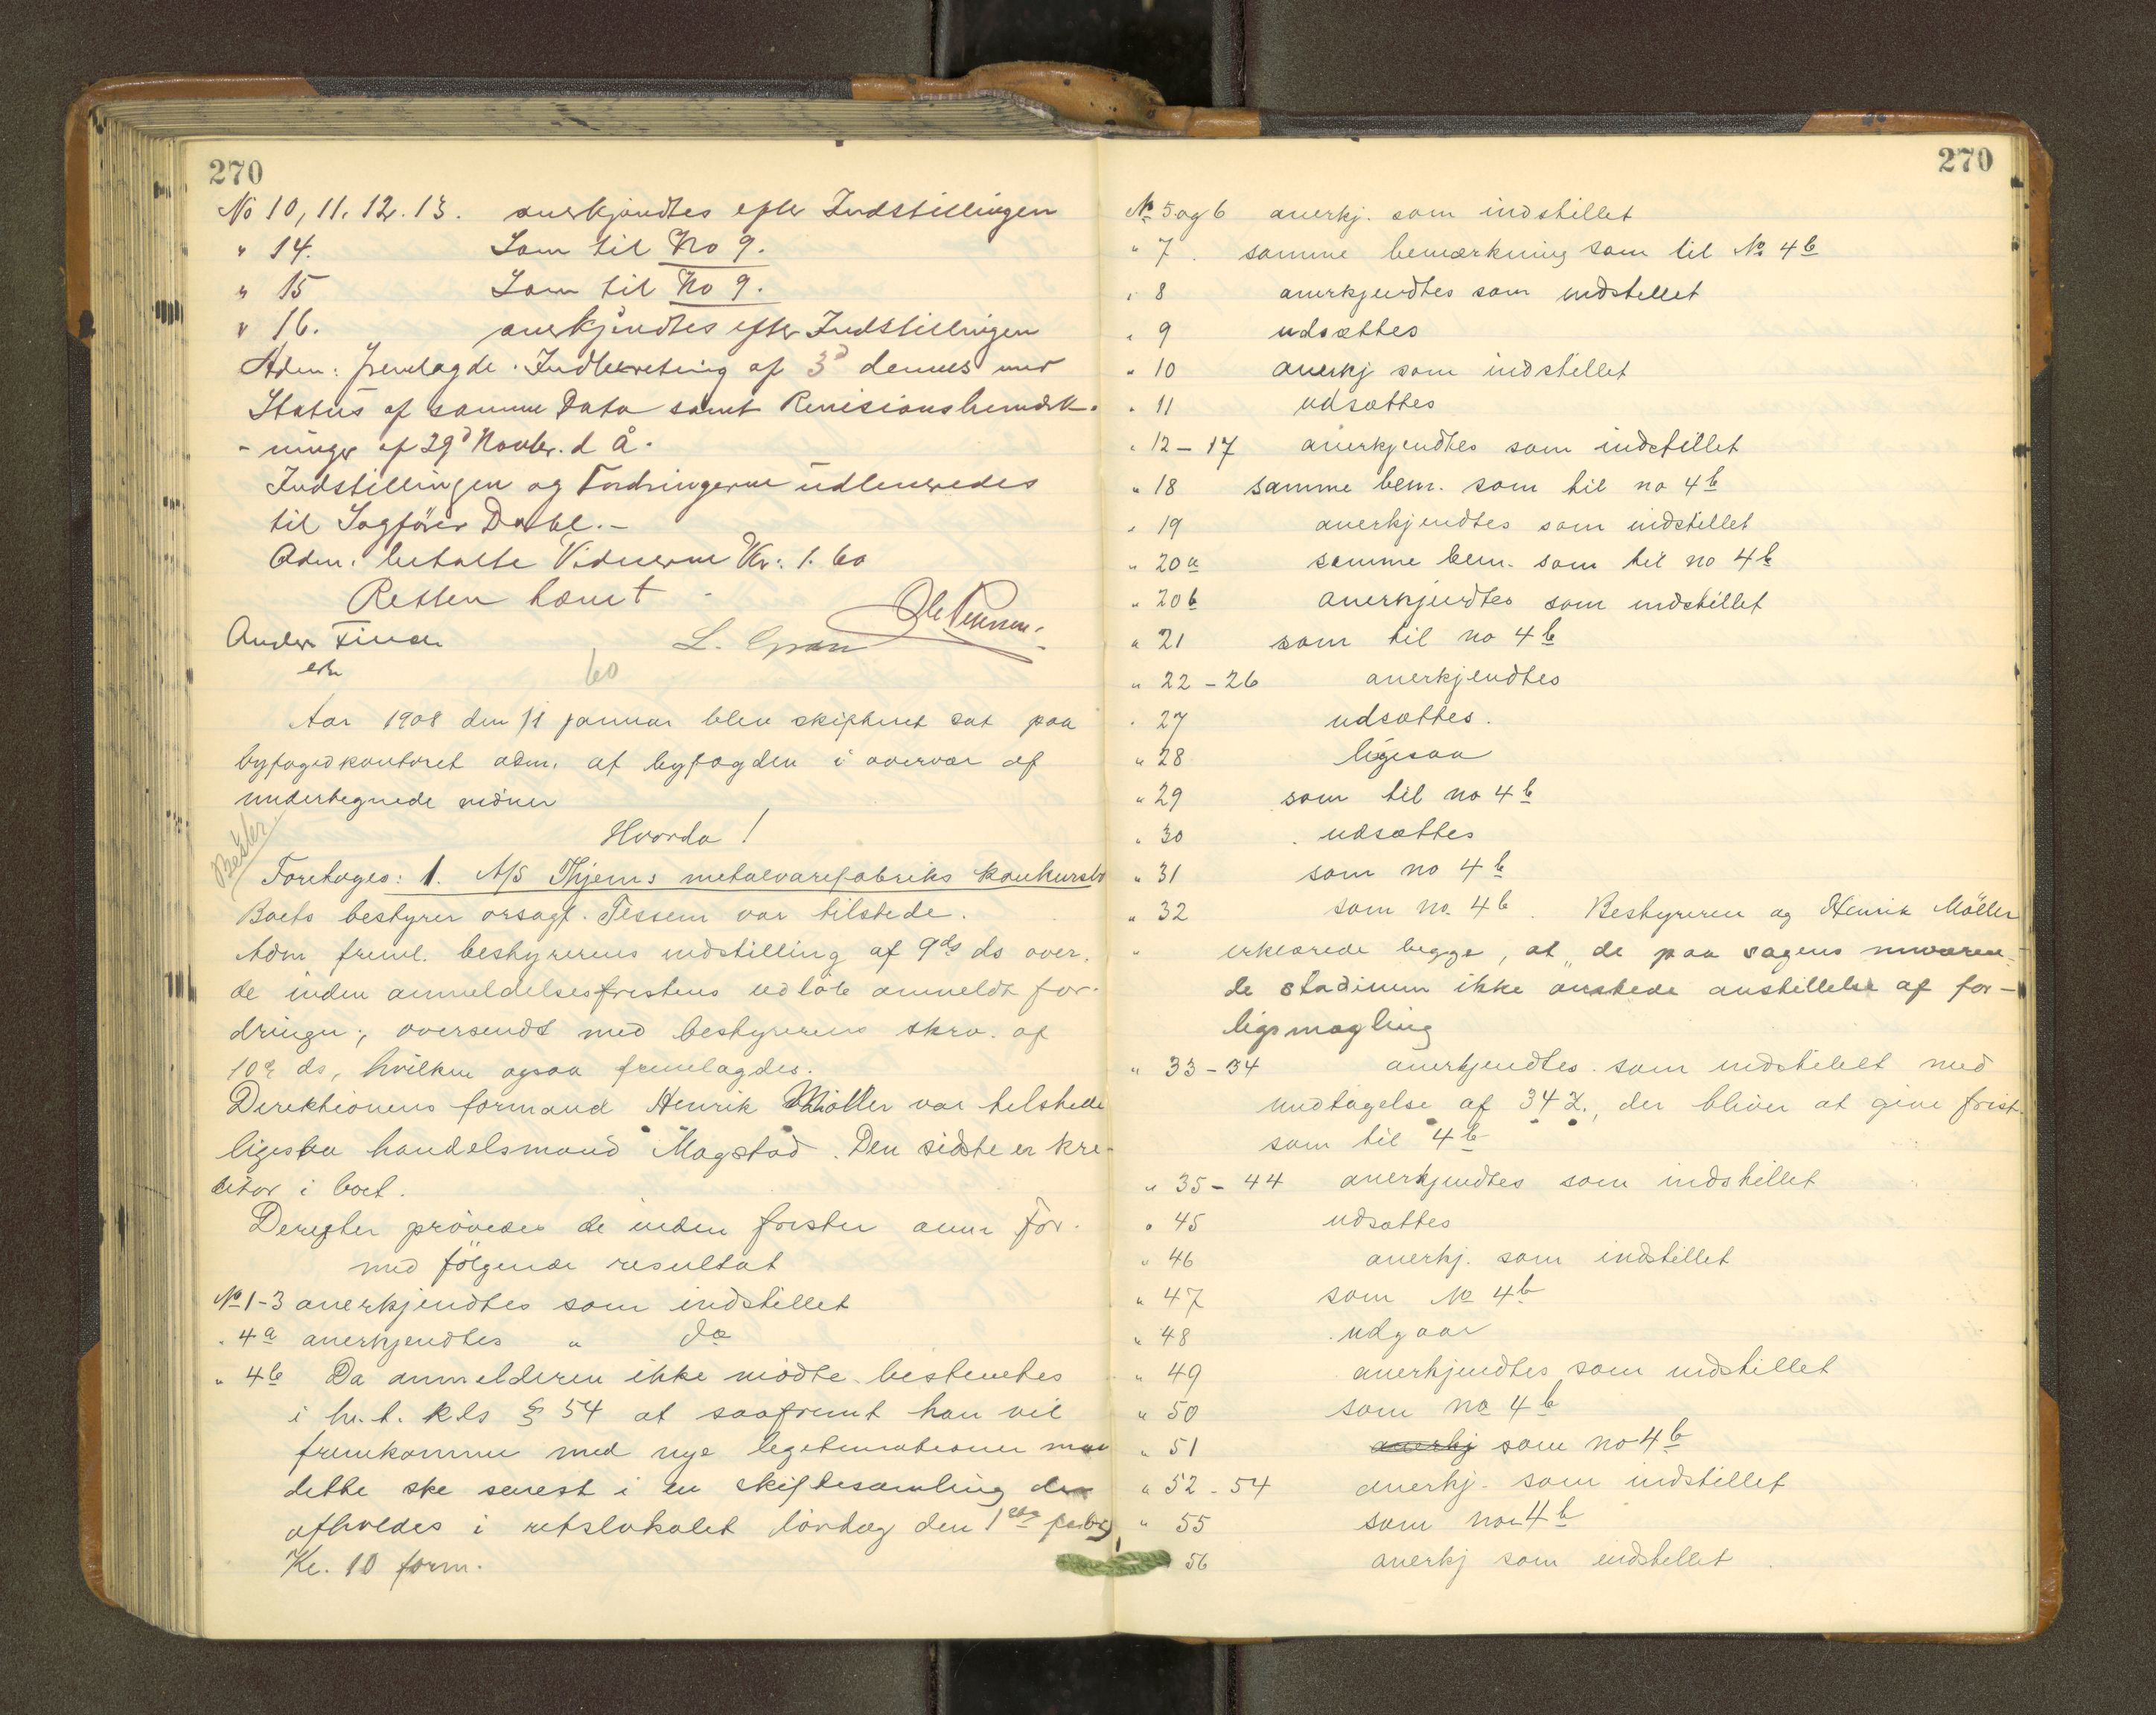 270
No 10, 11. 12. 13. anerkjendtes efter Indstillingen
" 14. Som til No 9.
" 15 Som til No 9.
" 16. anerkjendtes efter Indstillingen
Adm: fremlagde Indberetning af 3d dennes med
Status af samme Dato samt Revisionsbemærk-
-ninger af 29d Novbr. d Å.
Indstillingen og Fordringerne udleveredes
til Sagfører Dahl. -
Adm. betalte Vidnerne Kr: 1.60
Retten hævet
Anders L. Gran
60
Aar 1908 den 11 januar blev skifteret sat paa
byfogedkontoret adm. af byfogden i overvær af
undertegnede vidner
Hvorda!
Foretoges: 1. A/S Thjems metalvarefabriks konkursbo
Boets bestyrer orsagf. Tessem var tilstede.
Adm freml. bestyrerens indstilling af 9ds ds over.
de inden anmeldelsesfristens udløb anmeldte for-
dringer, oversendt med bestyrerens skrv. af
10de ds, hvilken ogsaa fremlagdes.
Direktionens formand Henrik Møller var tilstede
ligesaa handelsmand Magstad. Den sidste er kre-
ditor i boet.
Derefter prøvedes de inden fristen anm for.
med følgende resultat
No 1-3 anerkjendtes som indstillet
" 4a anerkjendtes " do
" 4b Da anmelderen ikke mødte bestemtes
i h. t. kls § 54 at saafremt han vil
fremkomme med nye legitimationer maa
dette ske senest i en skiftesamling der
afholdes i retslokalet lørdag den 1ste febr,
Kl. 10 form.
270
No 5 og 6 anerkj. som indstillet
" 7. samme bemærkning som til No 4b
" 8 anerkjendtes som indstillet
" 9 udsættes
" 10 anerkj som indstillet
" 11 udsættes
" 12-17 anerkjendtes som indstillet
" 18 samme bem. som til no 4b
" 19 anerkjendtes som indstillet
" 20a samme bem. som til no 4b
" 20b anerkjendtes som indstillet
" 21 som til no 4b
" 22-26 anerkjendtes
" 27 udsættes.
" 28 ligesaa
" 29 som til no 4b
" 30 udsættes
" 31 som no 4b
" 32 som no. 4b. Bestyreren og Henrik Møller
" erklærede begge, at de paa sagens nuværen-
de stadium ikke ønskede anstillelse af for-
ligsmægling
" 33-34 anerkjendtes som indstillet med
undtagelse af 34 2., der bliver at give frist
som til 4b
" 35-44 anerkjendtes som indstillet
" 45 udsættes
" 46 anerkj. som indstillet
" 47 som No 4b
" 48 udgaar
" 49 anerkjendtes som indstillet
" 50 som no 4b
" 51 anerkj som no 4b
" 52-54 anerkj. som indstillet
" 55 som no 4b
56 anerkj som indstillet